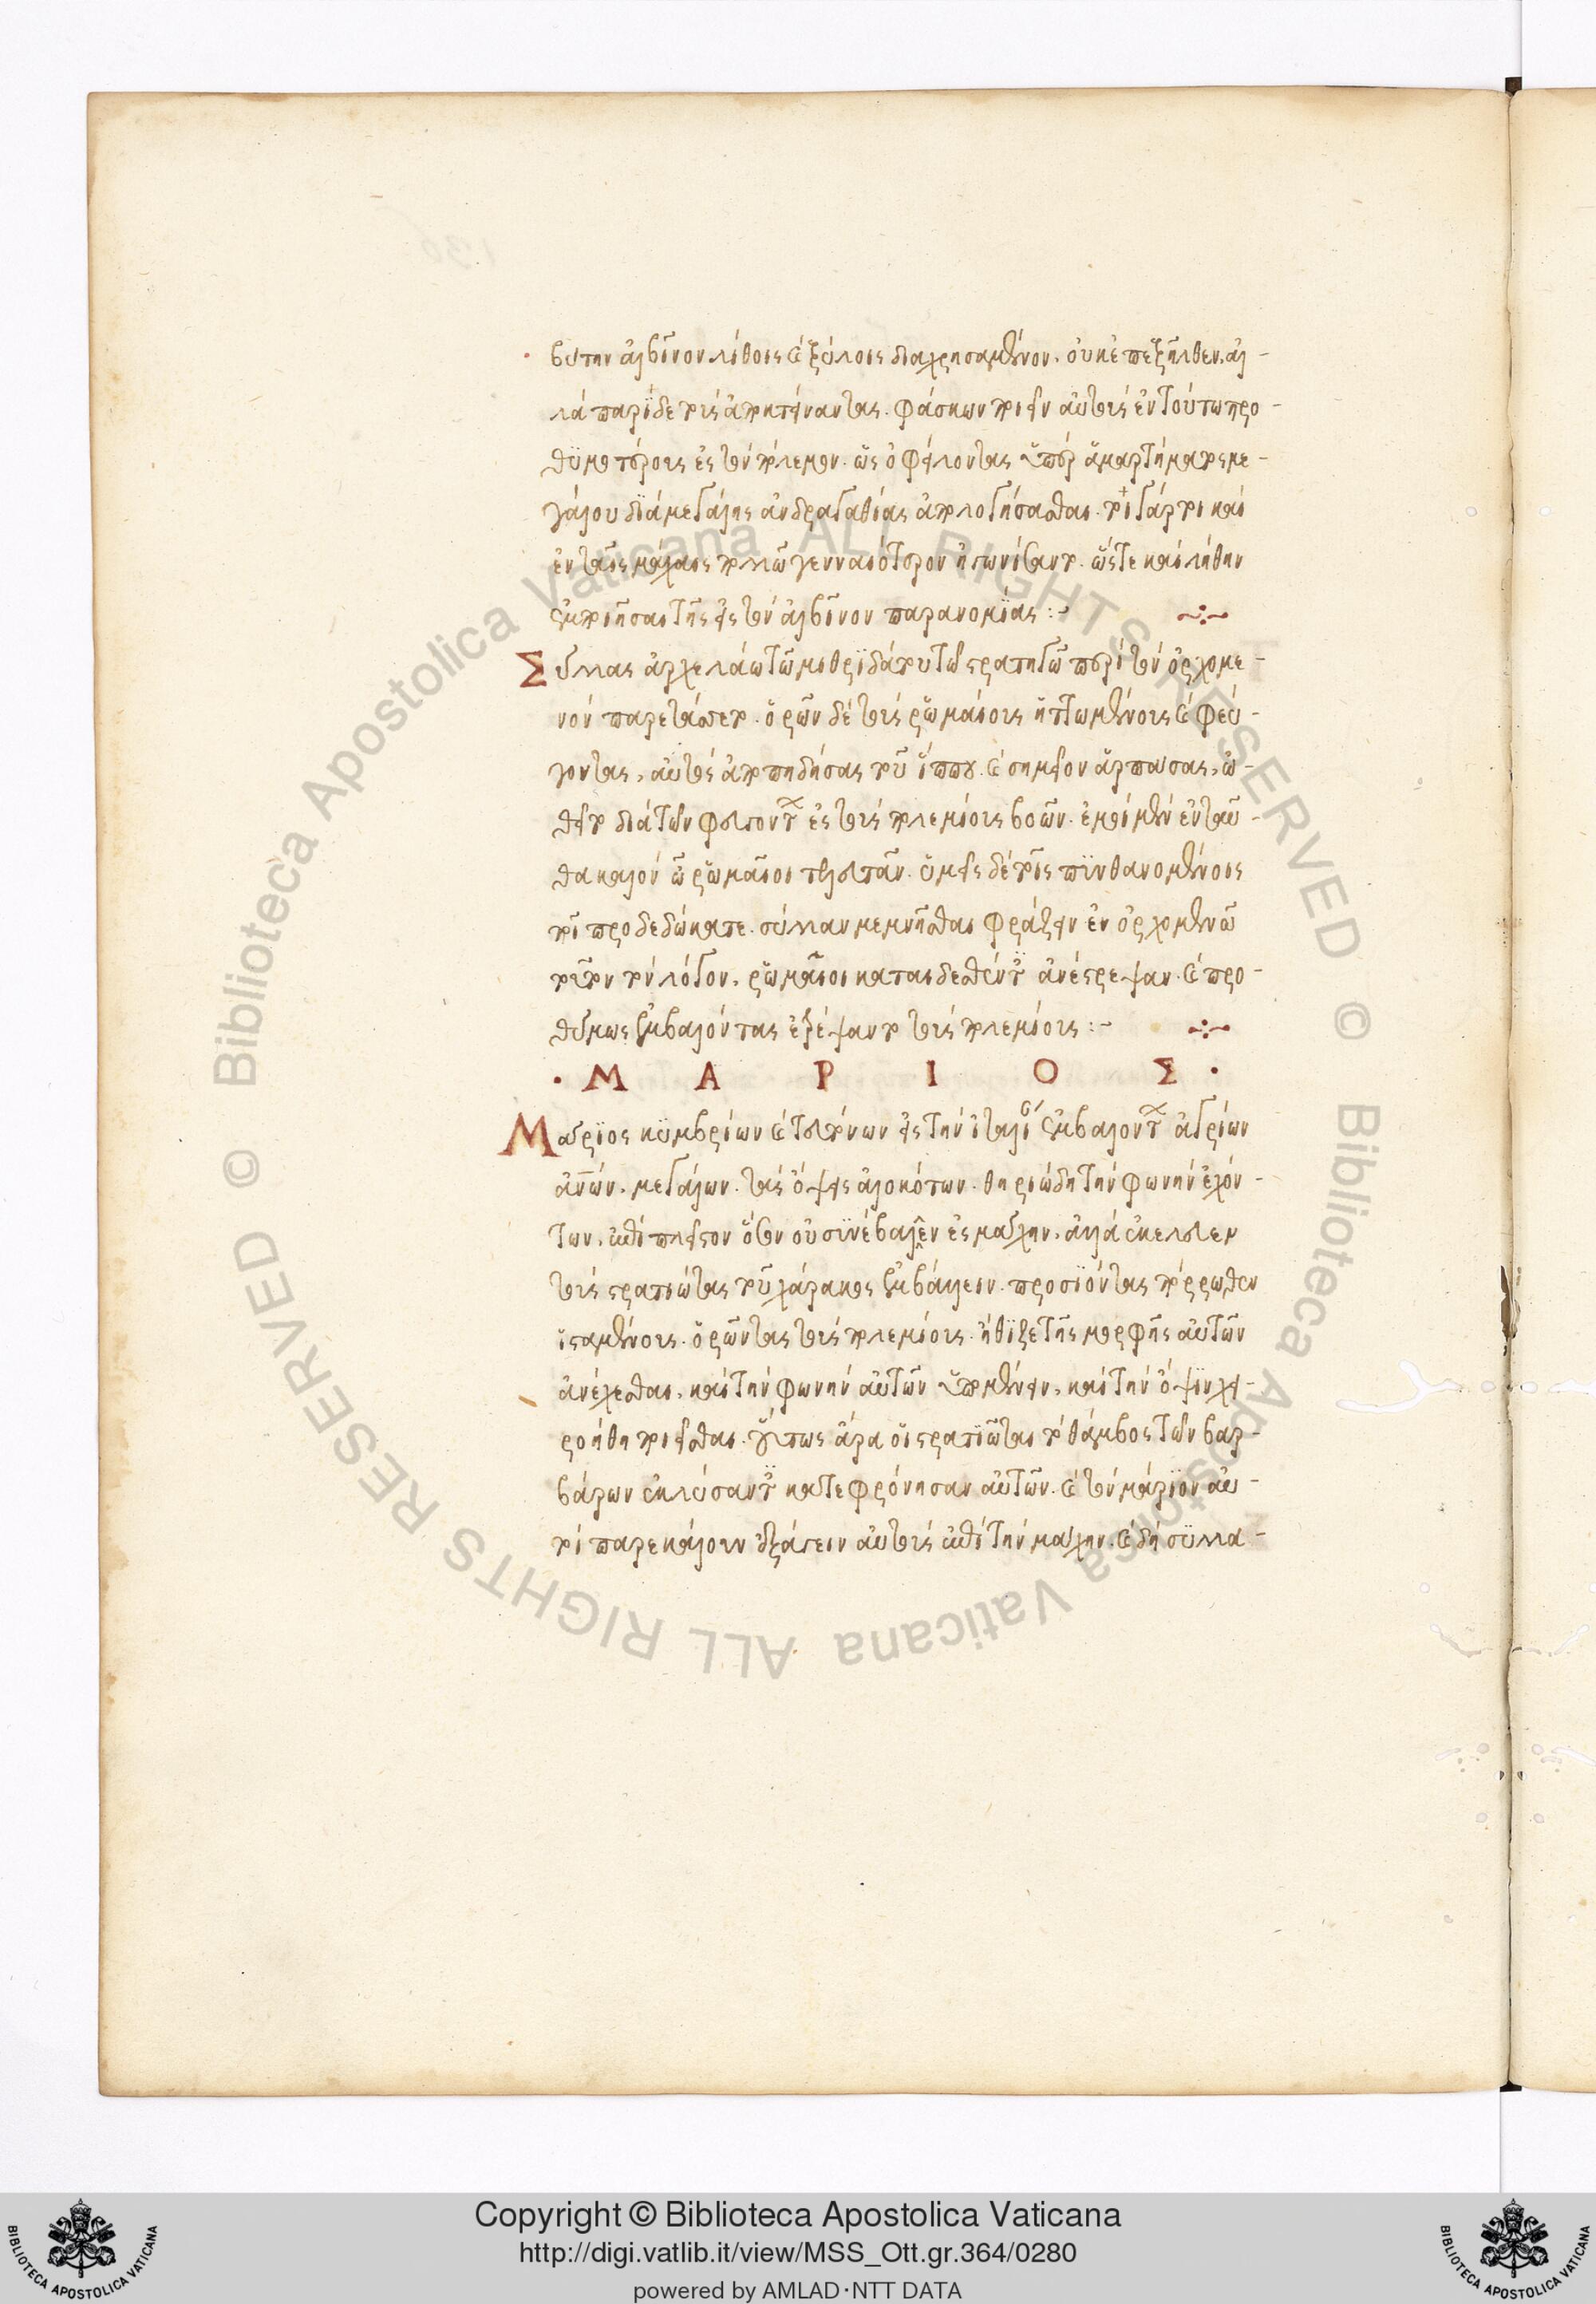 βύτην ἀλβῖνον λίθοις καὶ ξύλοις διαχρησαμένων. οὐκ ἐπεξῆλθεν. ἀλ-
λὰ παρίδε τοὺς ἀποκτείναντας. φάσκων ποιεῖν αὐτοὺς ἐν τούτω προ-
θϋμοτέροις ἐς τὸν πόλεμον. ὡς ὀφείλοντας ὑπὲρ ἁμαρτήματος με-
γάλου διὰ μεγάλης ἀνδραγαθίας ἀπολογήσασθαι. τοιγάρτοι καὶ
ἐν ταῖς μάχαις πολλῶ γενναιότερον ἠγωνίσαντο. ὥστε καὶ λήθην
ἐμποιῆσαι τῆς εἰς τὸν ἀλβῖνον παρανομΐας :~
Σύλλας ἀρχελάω τῶ μιθρϊδάτου στρατηγῶ περὶ τὸν ὀρχομε-
νὸν παρετάσσετο. ὁρῶν δὲ τοὺς ῥωμαίους ἡττωμένους καὶ φεύ-
γοντας, αὐτὸς ἀποπηδήσας τοῦ ἵππου. καὶ σημεῖον ἁρπάσας, ὠ-
θεῖτο διὰ τῶν φευγόντων ἐς τοὺς πολεμίους βοῶν. ἐμοὶ μὲν ἐνταῦ-
θα καλὸν ὦ ῥωμαῖοι τελευτᾶν. ὑμεῖς δὲ τοῖς πϋνθανομένοις
ποῖ προδεδώκατε σύλλαν μεμνῆσθαι φράζειν ἐν ὀρχομενῶ
τοῦτον τὸν λόγον, ῥωμαῖοι καταιδεσθέντες ἀνέστρεψαν. καὶ προ-
θύμως ἐμβαλόντας ἐτρέψαντο τοὺς πολεμίους :~
· Μ Α Ρ Ι Ο Σ ·
Μάρϊος κϋμβρίων καὶ τευτόνων εἰς τὴν ἰταλίαν ἐμβαλόντων ἀγρίων
ἀνῶν. μεγάλων. τὰς ὄψεις ἀλοκότων. θηριώδη τὴν φωνὴν ἐχόν-
των. ἐπὶ πλεῖστον αὐτὸν οὐ σϋνέβαλεν ἐς μάχην, ἀλλὰ ἐκέλευεν
τοὺς στρατιώτας τοῦ χάρακος ἐμβάλλειν. προσϊόντας πόρρωθεν
ἱσταμένους. ὁρῶντας τοὺς πολεμίους. ἤθϊζε τῆς μορφῆς αὐτῶν
ἀνέχεσθαι. καὶ τὴν φωνὴν αὐτῶν ὑπομένειν. καὶ τὴν ὄψϊν χει-
ροήθη ποιεῖσθαι. οὕτως ἄρα οἱ στρατιῶται τὸ θάμβος τῶν βαρ-
βάρων ἐκλύσαντες κατεφρόνησαν αὐτῶν. καὶ τὸν μάρϊον αὐ-
τοὶ παρεκάλουν ἐξάγειν αὐτοὺς ἐπὶ τὴν μάχην. καὶ δὴ σϋλλα-
Copyright © Biblioteca Apostolica Vaticana
http://digi.vatlib.it/view/MSS_Ott.gr.364/0280
powered by AMLAD·NTT DATA